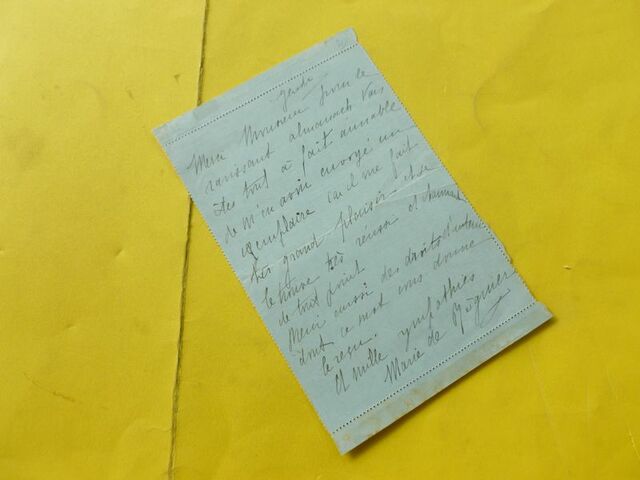 Jeudi
Merci Monsieur pour le
ravissant almanach. Vous
êtes tout à fait aimable
de m'en avoir envoyé un
exemplaire car il me fait
très grand plaisir et je
le trouve très réussi et charmant
de tout point
Merci aussi des droits d'auteur
dont ce mot vous donne
le reçu.
Et mille sympathies
Marie de Régnier